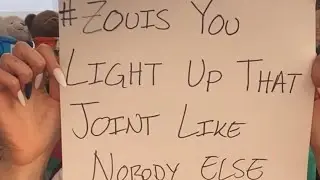 #Zouis You
Light Up That
Joint Like
Nobody Else